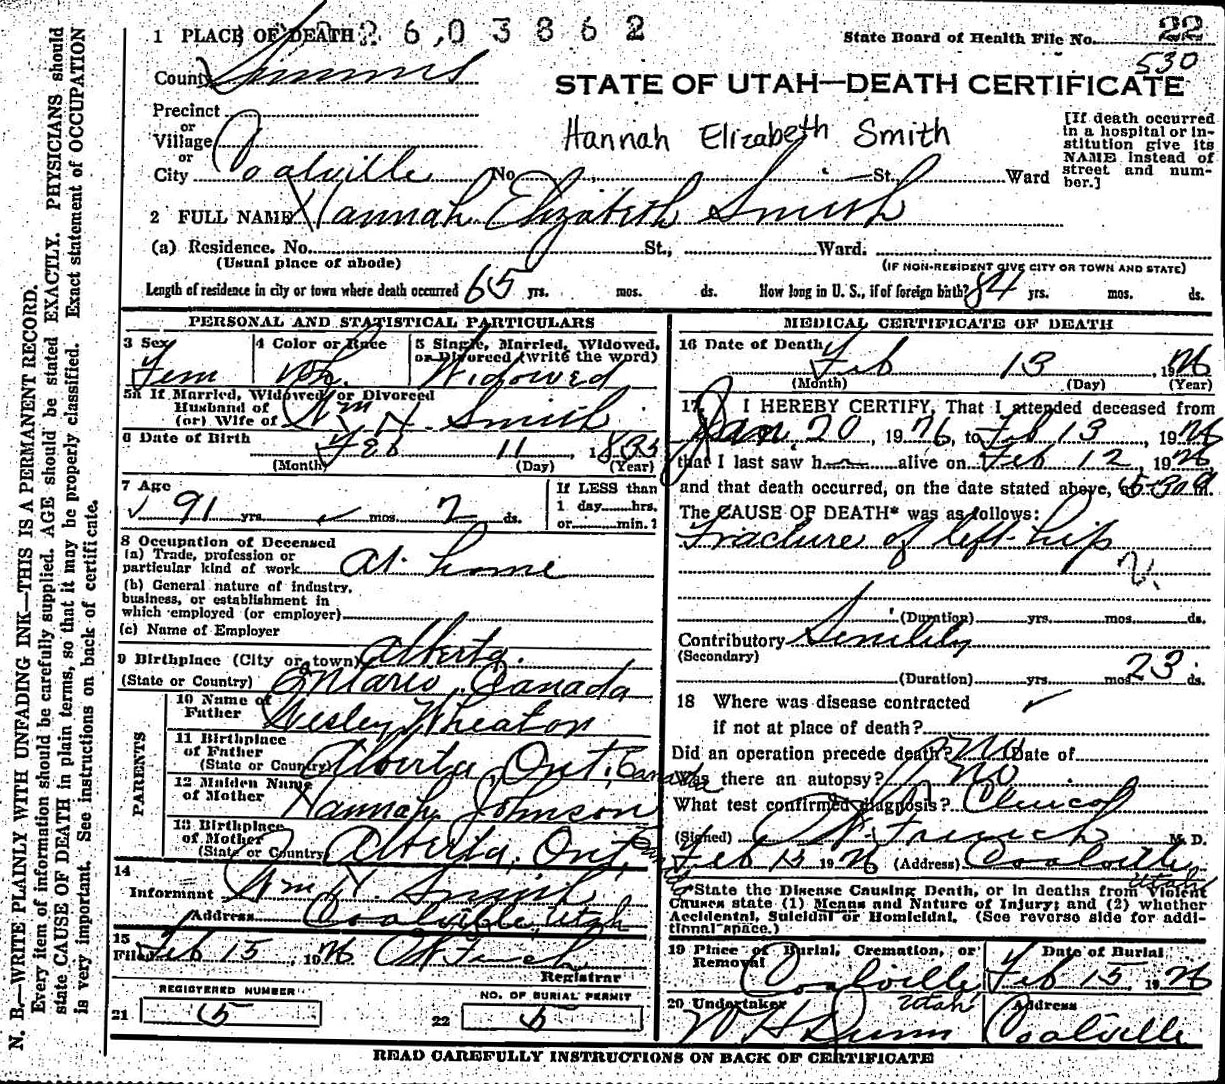 N. B.—WRITE PLAINLY WITH UNFADING INK—THIS IS A PERMANENT RECORD.
Every item of information should be carefully supplied. AGE should be stated EXACTLY. PHYSICIANS should
state CAUSE OF DEATH in plain terms, so that it may be properly classified. Exact statement of OCCUPATION
is very important. See instructions on back of certificate.
1 PLACE OF DEATH 2 6,03862
State Board of Health File No. 22
530
County Summit
STATE OF UTAH—DEATH CERTIFICATE
Precinct
or
Village
or
City Coalville No. St. Ward
Hannah Elizabeth Smith
[If death occurred
in a hospital or in-
stitution give its
NAME instead of
street and num-
ber.]
2 FULL NAME Hannah Elizabeth Smith
(a) Residence. No. St., Ward.
(Usual place of abode) (IF NON-RESIDENT GIVE CITY OR TOWN AND STATE)
Length of residence in city or town where death occurred 65 yrs. mos. ds. How long in U. S., if of foreign birth? 84 yrs. mos. ds.
PERSONAL AND STATISTICAL PARTICULARS
3 Sex
Fem
4 Color or Race
Wh.
5 Single, Married, Widowed,
or Divorced (write the word)
Widowed
5a If Married, Widowed, or Divorced
Husband of
(or) Wife of Wm H. Smith
6 Date of Birth Feb 11, 1835
(Month) (Day) (Year)
7 Age
91 yrs. mos. 2 ds.
If LESS than
1 day hrs.
or min.?
8 Occupation of Deceased
(a) Trade, profession or
particular kind of work At home
(b) General nature of industry,
business, or establishment in
which employed (or employer)
(c) Name of Employer
9 Birthplace (City or town) Alberta.
(State or Country) Ontario, Canada
PARENTS
10 Name of
Father Wesley Wheaton
11 Birthplace
of Father
(State or Country) Alberta, Ont, Canada
12 Maiden Name
of Mother Hannah Johnson
13 Birthplace
of Mother
(State or Country) Alberta, Ont, Can
14
Informant Wm H. Smith
Address Coalville, Utah
15
Filed Feb 15, 1926
Registrar
REGISTERED NUMBER
21 5
NO. OF BURIAL PERMIT
22 5
MEDICAL CERTIFICATE OF DEATH
16 Date of Death
Feb 13 1926
(Month) (Day) (Year)
17 I HEREBY CERTIFY, That I attended deceased from
Jan. 20, 1926, to Feb 13, 1926
that I last saw h alive on Feb 12, 1926,
and that death occurred, on the date stated above, at 5:30 a m.
The CAUSE OF DEATH* was as follows:
Fracture of left hip
(Duration) yrs. mos. ds.
Contributory Senility
(Secondary)
(Duration) yrs. mos. 23 ds.
18 Where was disease contracted
if not at place of death?
Did an operation precede death? No Date of
Was there an autopsy? No
What test confirmed diagnosis? Clinical
(Signed) M. D.
Feb 15 1926 (Address) Coalville
Utah
*State the Disease Causing Death, or in deaths from Violent
Causes state (1) Means and Nature of Injury; and (2) whether
Accidental, Suicidal or Homicidal. (See reverse side for addi-
tional space.)
19 Place of Burial, Cremation, or
Removal
Coalville
Utah
Date of Burial
Feb 15, 1926
20 Undertaker
W H Dunn
Address
Coalville
READ CAREFULLY INSTRUCTIONS ON BACK OF CERTIFICATE